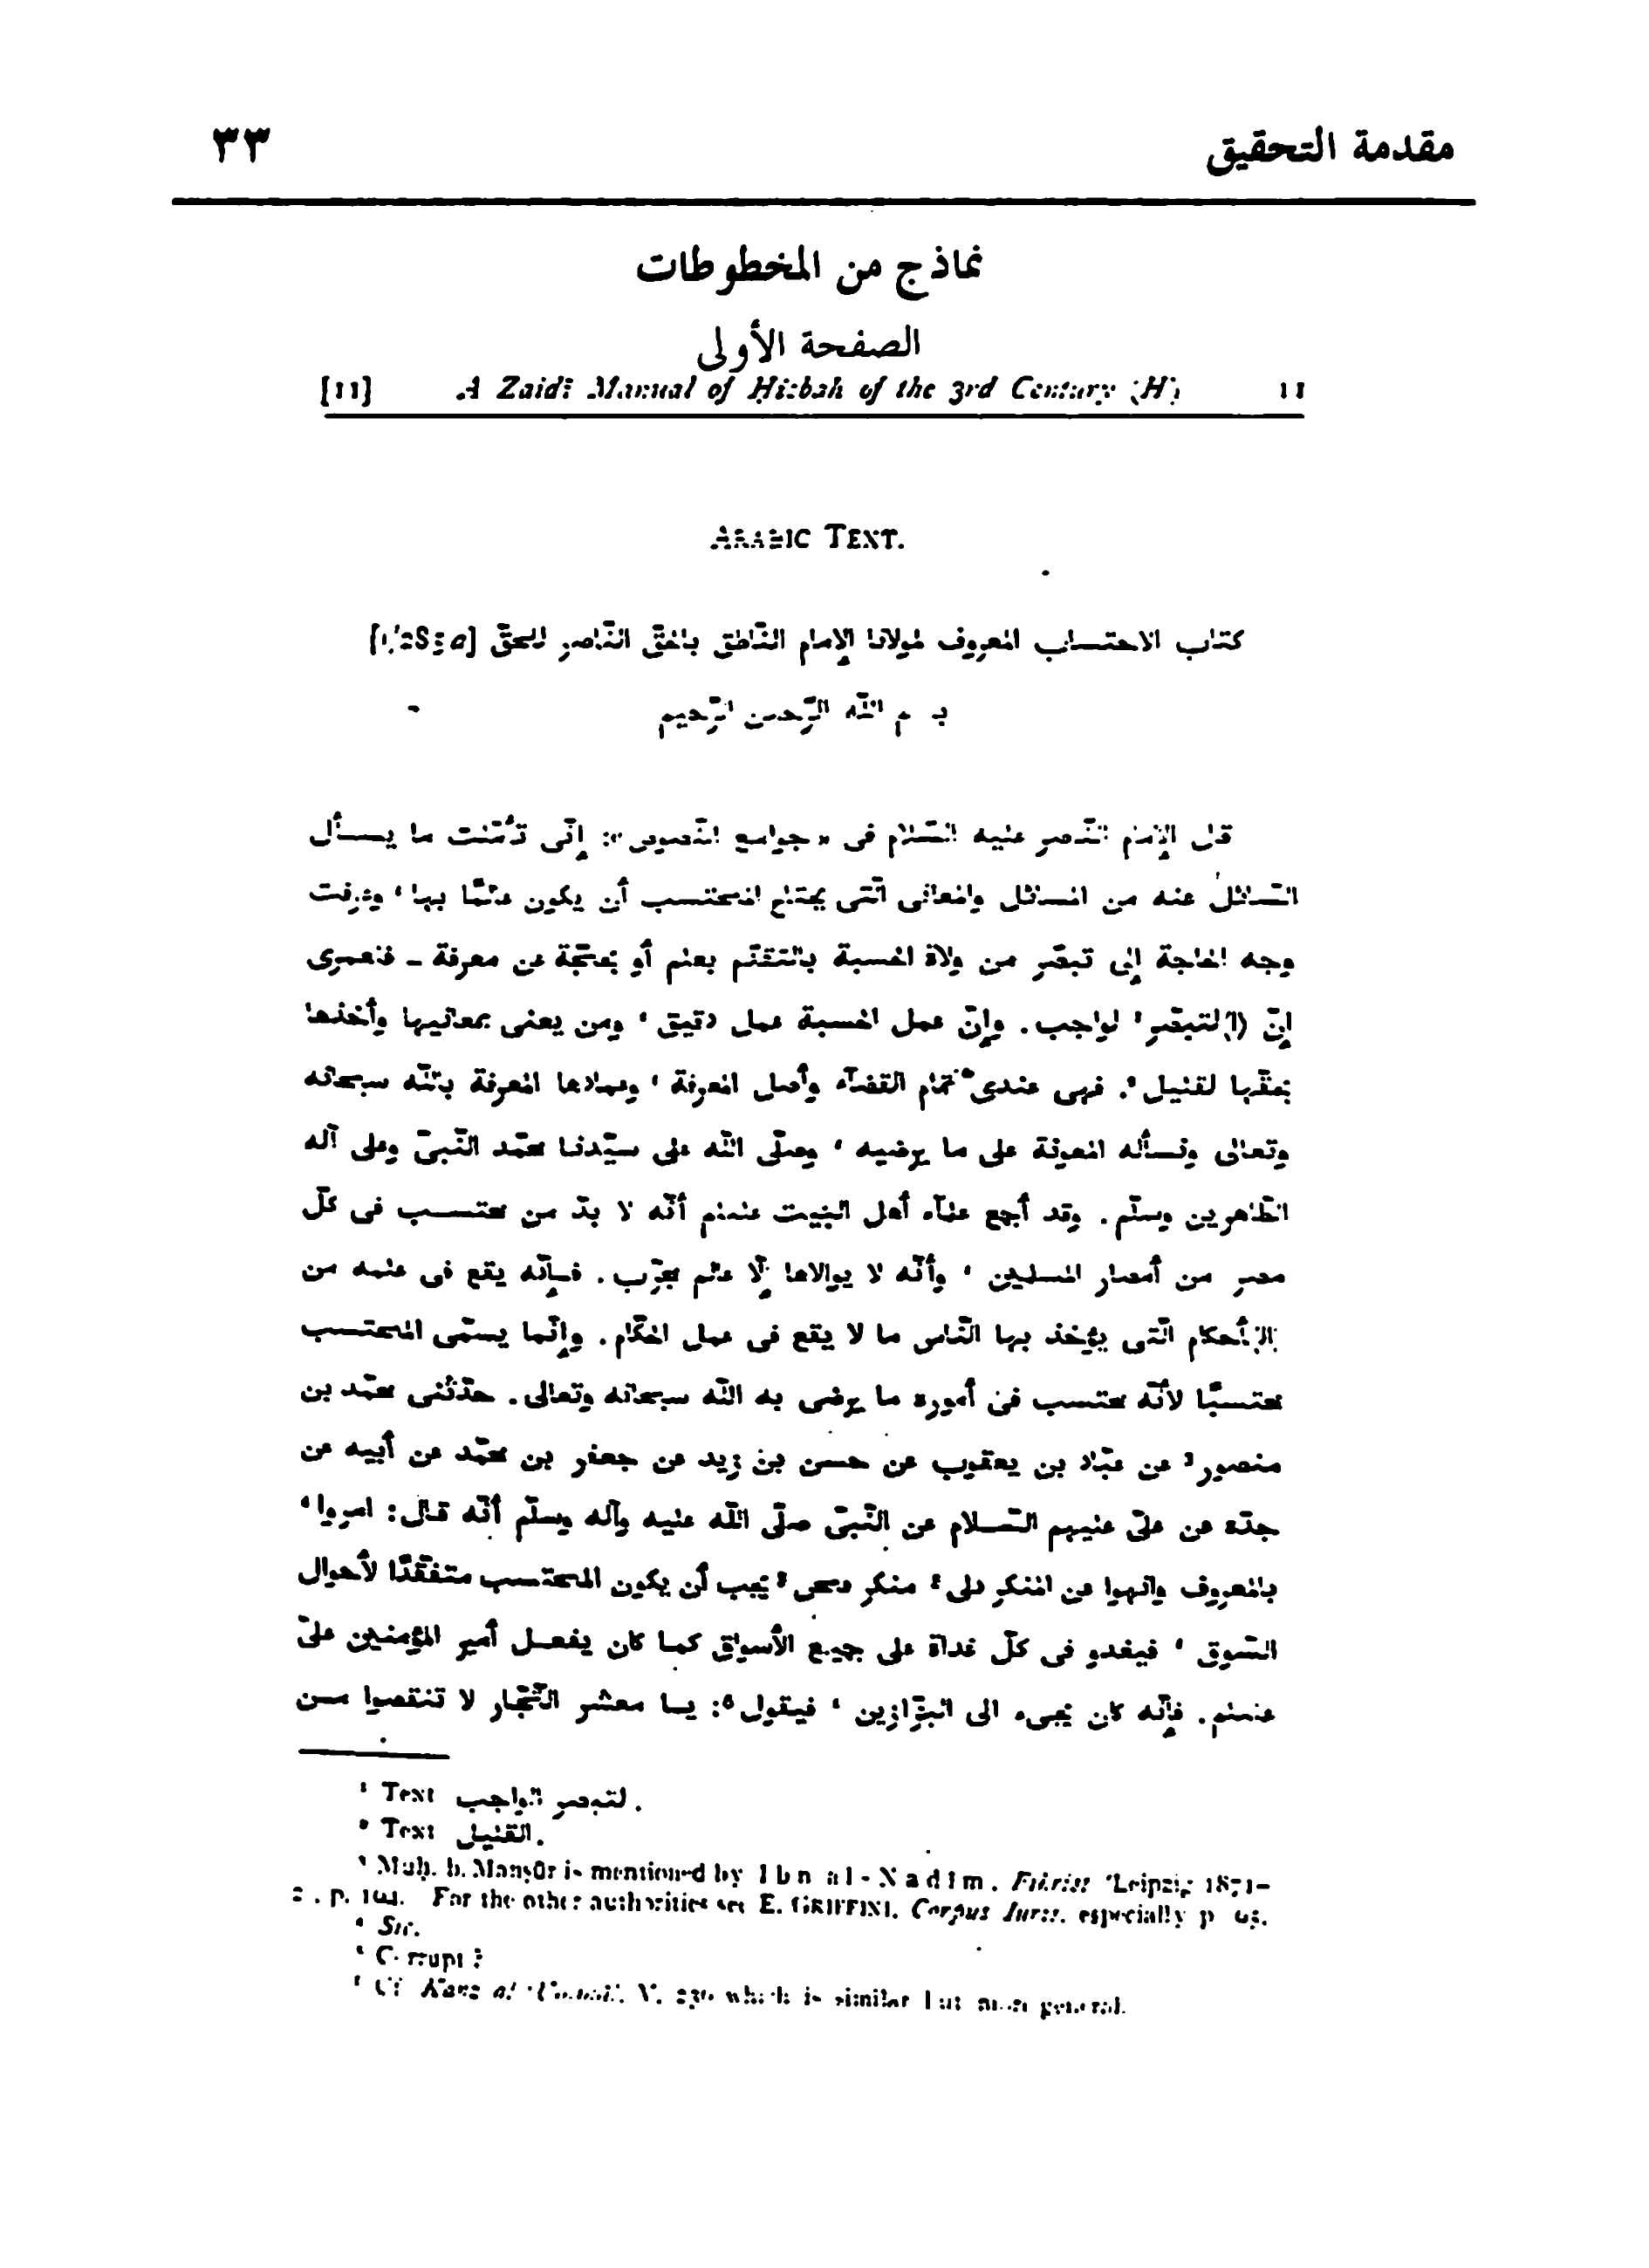 مقدمة التحقيق ٣٣
نماذج من المخطوطات
الصفحة الأولى
[11] A Zaidī Manual of Ḥisbah of the 3rd Century (H) 11
ARABIC TEXT.
كتاب الاحتساب المعروف لمولانا الإمام النّاطق بالحقّ النّاصر للحقّ
بسم اللّه الرّحمن الرّحيم
قال الإمام النّاصر عليه السّلام فى «جوامع النّصوص»: إنّى تأمّلت ما يسأل
السّائل عنه من المسائل والمعانى الّتى يحتاج المحتسب أن يكون عالمًا بها، وعرفت
وجه الحاجة إلى تبصّر من ولاة الحسبة بالتقدّم بعلم أو بحجّة عن معرفة ـ فلعمرى
إنّ (ا)لتبصّر¹ لواجب. وإنّ عمل الحسبة عمل دقيق، ومن يعنى بمعانيها وأخذها
بحقّها لقليل². فهى عندى تمام القضآء وأصل المعرفة، وعمادها المعرفة باللّه سبحانه
وتعالى ونسأله المعونة على ما يرضيه، وصلّى اللّه على سيّدنا محمّد النّبىّ وعلى آله
الطّاهرين وسلّم. وقد أجمع علمآء أهل البيت عندنم أنّه لا بدّ من محتسب فى كلّ
مصر من أمصار المسلمين، وأنّه لا يوالاها إلّا عالم مجرّب. فإنّه يقع فى علمه من
الأحكام الّتى يؤخذ بها النّاس ما لا يقع فى عمل الحكّام. وإنّما يسمّى المحتسب
محتسبًا لأنّه محتسب فى أموره ما يرضى به اللّه سبحانه وتعالى. حدّثنى محمّد بن
منصور³ عن عبّاد بن يعقوب عن حسن بن زيد عن جعفر بن محمّد عن أبيه عن
جدّه عن علىّ عليهم السّلام عن النّبىّ صلّى اللّه عليه وآله وسلّم أنّه قال: امروا،
بالمعروف وانهوا عن المنكر على⁴ منكر يجب أن يكون المحتسب متفقّدًا لأحوال
السّوق، فيغدو فى كلّ غداة على جميع الأسواق كما كان يفعل أمير المؤمنين علىّ
عليه السّلم. فإنّه كان يجىء الى البزّازين، فيقول⁶: يا معشر التّجّار لا تنقصوا من
¹ Text لتبصر الواجب.
² Text القليل.
³ Muḥ. b. Manṣūr is mentioned by Ibn al-Nadīm, Fihrist (Leipzig 1871–
2), p. 194. For the other authorities see E. GRIFFINI, Corpus Juris, especially p.
⁴ Sic.
⁵ Corrupt?
⁶ Cf. Kanz al-ʿUmmāl, V, which is similar but more general.